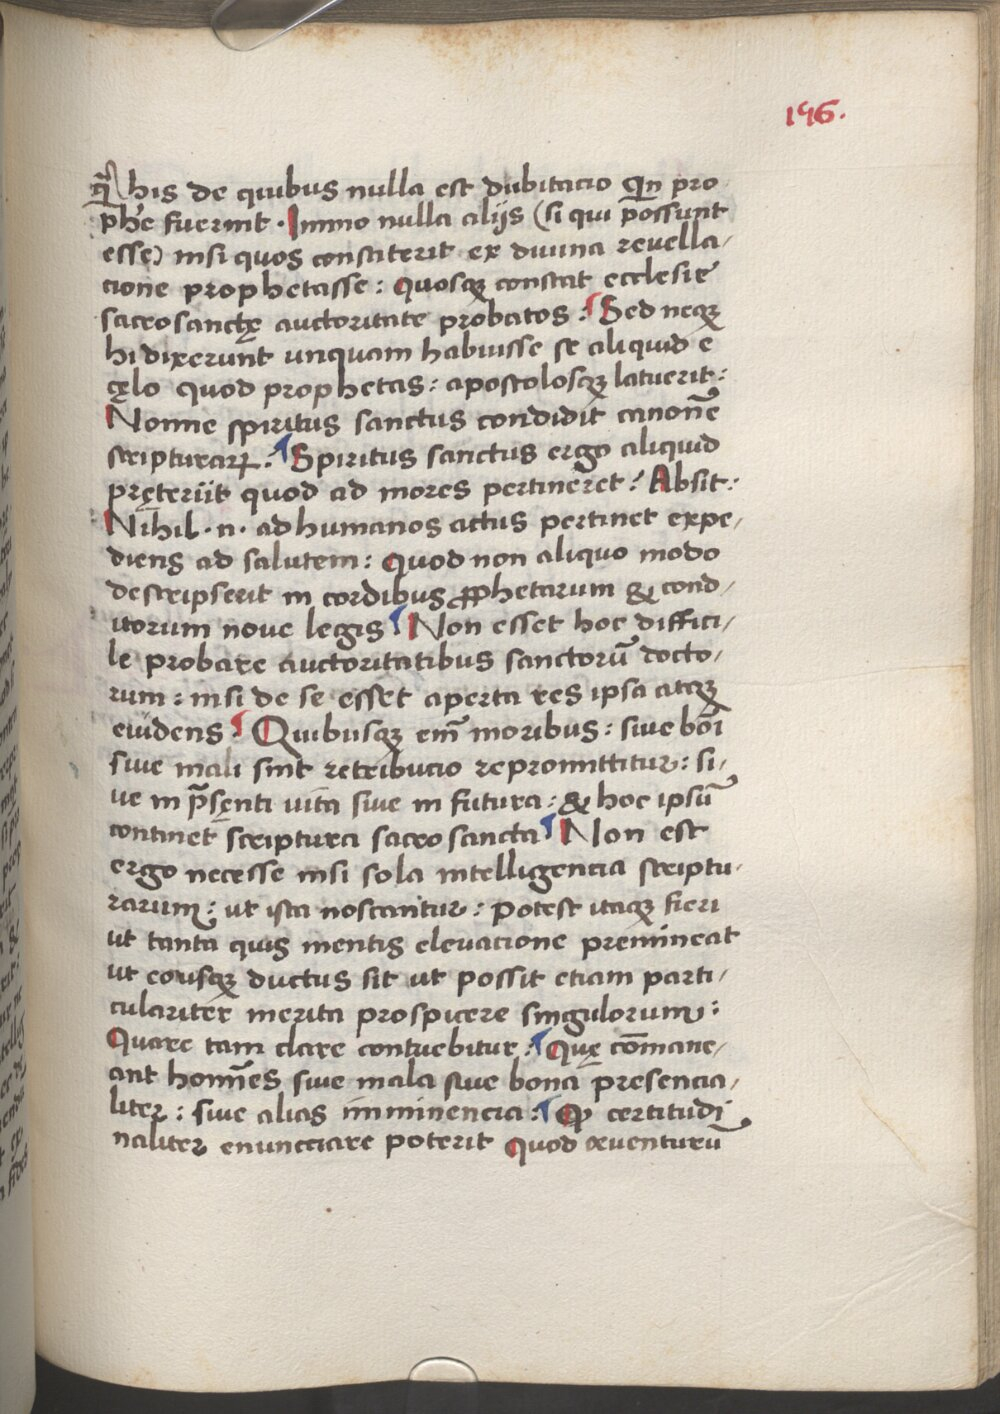 196.
qͣ his de quibus nulla est dubitacio Qn pro
phē fuerint . Immo nulla alijs (si qui possunt
esse) nisi quos constiterit ex diuina reuella/
cione prophetasse : Quosqꝫ constat ecclesie
sacrosanctę auctoritate probatos : Sed neqꝫ
hi dixerunt unquam habuisse se aliquid e
cęlo quod prophetas : apostolosqꝫ latuerit :
Nonne spiritus sanctus condidit canonē
scripturaꝝ : Spiritus sanctus ergo aliquid
pręteriit quod ad mores pertineret ? Absit :
Nihil . n . ad humanos actus pertinet expe/
diens ad salutem : Quod non aliquo modo
descripserit in cordibus ꝓphetarum & cond/
itorum noue legis Non esset hoc diffici/
le probare auctoritatibus sanctorū docto/
rum : nisi de se esset aperta res ipsa atqꝫ
euidens Quibusqꝫ em̄ moribus : siue boni
siue mali sint retribucio repromittitur : si/
ue in p̄sęnti uita siue in futura : & hoc ipsū
continet scriptura sacrosancta Non est
ergo necesse nisi sola intelligencia scriptu/
rarum : ut ista noscantur : Potest itaqꝫ fieri
ut tanta quis mentis eleuacione premineat
ut eousqꝫ ductus sit ut possit etiam parti/
culariter merita prospicere singulorum :
Quare tam clare contuebitur : Quę cōmane/
ant homines siue mala siue bona presencia/
liter : siue alias imminencia : Ꝙ certitudi
naliter enuncciare poterit Quod euenturū